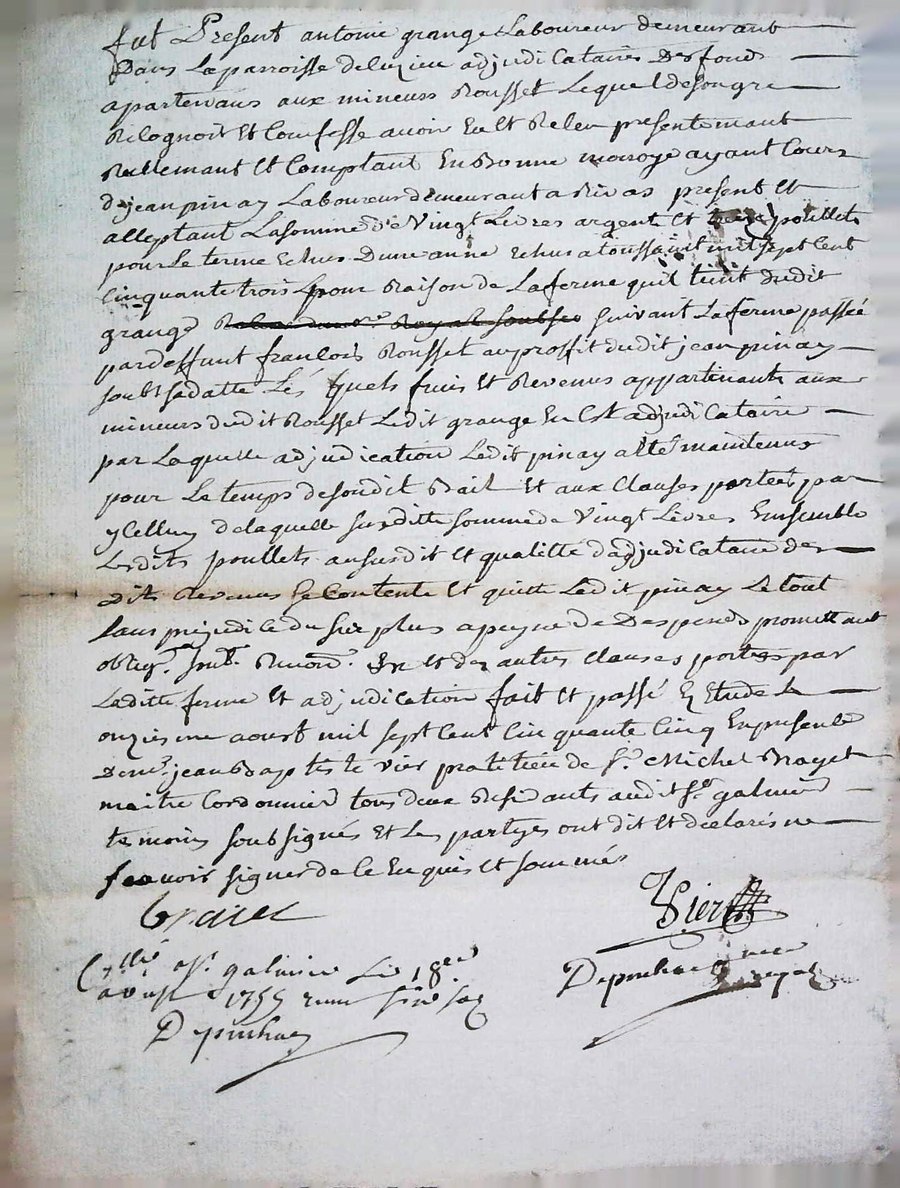 fut Present antoine grange Laboureur demeurant
Dans La parroisse deluzieu adjudicataire Des fonds
apartenans aux mineurs Rousset Lequel desongre
Recognoit Et Confesse avoir Eu Et Receu presentemant
Reellemant Et Comptant En Bonne monoye ayant Cours
de jean pinay Laboureur demeurant a Rivas present Et
acceptant La somme de Vingt Livres argent Et poullets
pour Le terme Echus Dune anne Echus a toussaint mil sept Cent
Cinquante trois pour Raison de La ferme quil tient dudit
grange Royal soubse suivant La ferme passée
pardessant francois Rousset au proffit dudit jean pinay
soubt sa datte Les quels fruis Et Revenus appartenants aux
mineurs dudit Rousset Ledit grange En Est adjudicataire
par Laquelle adjudication Ledit pinay a Eté maintenus
pour Le temps desondit Bail Et aux Clauses portees par
ycelluy de laquelle susditte somme de Vingt Livres Ensemble
Lesdits poullets au susdit Et qualitté dadjudicataire des
dits Revenus se Contente Et quitte Ledit pinay Le tout
sans prejudice du surplus a peyne de Despends promettant
oblig. Renon. Et des autres Clauses portes par
Laditte ferme Et adjudication fait Et passé En Etude Le
onziesme aoust mil sept Cent Cinquante Cinq En presence
De me. jean Baptiste Vier et de Sr. Michel
maitre Cordonnier tous deux Residants audit St. galmier
temoins soubsignés Et Les partyes ont dit Et declarés ne
scavoir signer de ce Enquis Et sommés
Vier
a St. galmier Le 18
aoust 1755